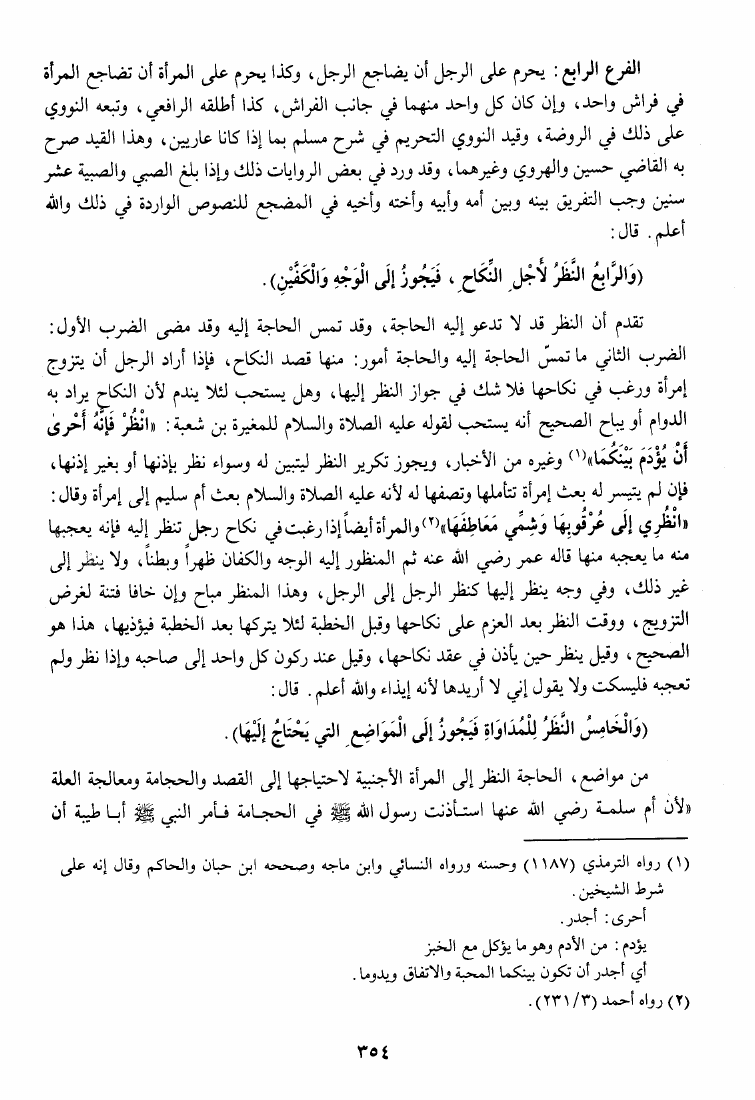 الفرع الرابع: يحرم على الرجل أن يضاجع الرجل، وكذا يحرم على المرأة أن تضاجع المرأة
في فراش واحد، وإن كان كل واحد منهما في جانب الفراش، كذا أطلقه الرافعي، وتبعه النووي
على ذلك في الروضة، وقيد النووي التحريم في شرح مسلم بما إذا كانا عاريين، وهذا القيد صرح
به القاضي حسين والهروي وغيرهما، وقد ورد في بعض الروايات ذلك وإذا بلغ الصبي والصبية عشر
سنين وجب التفريق بينه وبين أمه وأبيه وأخته وأخيه في المضجع للنصوص الواردة في ذلك والله
أعلم. قال:
(وَالرَّابِعُ النَّظَرُ لأَجْلِ النِّكَاحِ، فَيَجُوزُ إلَى الْوَجْهِ وَالْكَفَّيْنِ).
تقدم أن النظر قد لا تدعو إليه الحاجة، وقد تمس الحاجة إليه وقد مضى الضرب الأول:
الضرب الثاني ما تمسّ الحاجة إليه والحاجة أمور: منها قصد النكاح، فإذا أراد الرجل أن يتزوج
إمرأة ورغب في نكاحها فلا شك في جواز النظر إليها، وهل يستحب لئلا يندم لأن النكاح يراد به
الدوام أو يباح الصحيح أنه يستحب لقوله عليه الصلاة والسلام للمغيرة بن شعبة: «انْظُرْ فَإِنَّهُ أَحْرىٰ
أَنْ يُؤْدَمَ بَيْنَكُمَا»(١) وغيره من الأخبار، ويجوز تكرير النظر ليتبين له وسواء نظر بإذنها أو بغير إذنها،
فإن لم يتيسر له بعث إمرأة تتأملها وتصفها له لأنه عليه الصلاة والسلام بعث أم سليم إلى إمرأة وقال:
«انْظُرِي إلَى عُرْقُوبِهَا وَشُمِّي مَعَاطِفَهَا»(٢) والمرأة أيضاً إذا رغبت في نكاح رجل تنظر إليه فإنه يعجبها
منه ما يعجبه منها قاله عمر رضي الله عنه ثم المنظور إليه الوجه والكفان ظهراً وبطناً، ولا ينظر إلى
غير ذلك، وفي وجه ينظر إليها كنظر الرجل إلى الرجل، وهذا المنظر مباح وإن خافا فتنة لغرض
التزويج، ووقت النظر بعد العزم على نكاحها وقبل الخطبة لئلا يتركها بعد الخطبة فيؤذيها، هذا هو
الصحيح، وقيل ينظر حين يأذن في عقد نكاحها، وقيل عند ركون كل واحد إلى صاحبه وإذا نظر ولم
تعجبه فليسكت ولا يقول إني لا أريدها لأنه إيذاء والله أعلم. قال:
(وَالْخَامِسُ النَّظَرُ لِلْمُدَاوَاةِ فَيَجُوزُ إلَى الْمَوَاضِعِ التي يَحْتَاجُ إلَيْهَا).
من مواضع، الحاجة النظر إلى المرأة الأجنبية لاحتياجها إلى القصد والحجامة ومعالجة العلة
«لأن أم سلمة رضي الله عنها استأذنت رسول الله ﷺ في الحجامة فأمر النبي ﷺ أبا طيبة أن
(١) رواه الترمذي (١١٨٧) وحسنه ورواه النسائي وابن ماجه وصححه ابن حبان والحاكم وقال إنه على
شرط الشيخين.
أحرى: أجدر.
يؤدم: من الأدم وهو ما يؤكل مع الخبز
أي أجدر أن تكون بينكما المحبة والاتفاق ويدوما.
(٢) رواه أحمد (٢٣١/٣).
٣٥٤